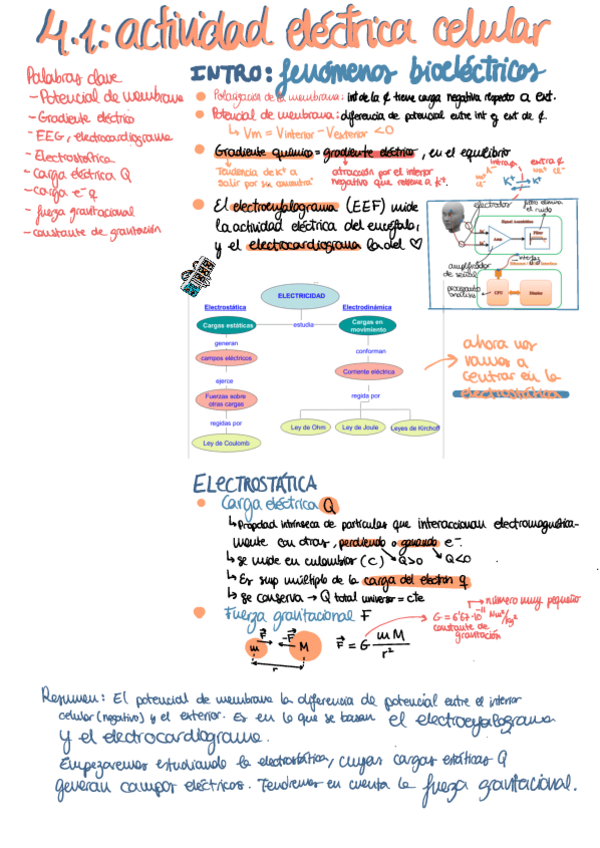 4.1: actividad eléctrica celular
Palabras clave
- Potencial de membrana
- Gradiente eléctrico
- EEG, electrocardiograma
- Electrostática
- Carga eléctrica Q
- carga e⁻ q
- fuerza gravitacional
- constante de gravitación
INTRO: fenómenos bioeléctricos
Polarización de la membrana: int de la ¢ tiene carga negativa respecto a ext.
Potencial de membrana: diferencia de potencial entre int y ext de ¢.
↳ Vm = Vinterior - Vexterior < 0
Gradiente químico = gradiente eléctrico, en el equilibrio
Tendencia de K⁺ a
salir por su concentraº
atracción por el interior
negativo que retiene a K⁺.
intra ¢
extra ¢
K⁺
K⁺
El electroencefalograma (EEF) mide
la actividad eléctrica del encéfalo,
y el electrocardiograma la del ♡
electrodos
filtro elimina
el ruido
Amp
Filter
amplificador
de señal
interfaz
procesador
analiza
CPU
Display
ELECTRICIDAD
Electrostática
Electrodinámica
Cargas estáticas
estudia
Cargas en
movimiento
generan
conforman
campos eléctricos
Corriente eléctrica
ejerce
regida por
Fuerzas sobre
otras cargas
regidas por
Ley de Ohm
Ley de Joule
Leyes de Kirchoff
Ley de Coulomb
ahora nos
vamos a
centrar en la
electrostática
ELECTROSTÁTICA
Carga eléctrica Q
↳ Propdad intrínseca de partículas que interaccionan electromagnética-
mente con otras, perdiendo o ganando e⁻.
↳ se mide en culombios (C) Q>0 Q<0
↳ Es sup múltiplo de la carga del electrón q
↳ se conserva → Q total universo = cte
Fuerza gravitacional F
número muy pequeño
G = 6'67·10⁻¹¹ Nm²/kg²
constante de
gravitación
F⃗ -F⃗
m M
r
F⃗ = G mM/r²
Resumen: El potencial de membrana la diferencia de potencial entre el interior
celular (negativo) y el exterior. Es en lo que se basan el electroencefalograma
y el electrocardiograma.
Empezaremos estudiando la electrostática, cuyas cargas estáticas Q
generan campos eléctricos. Tendremos en cuenta la fuerza gravitacional.